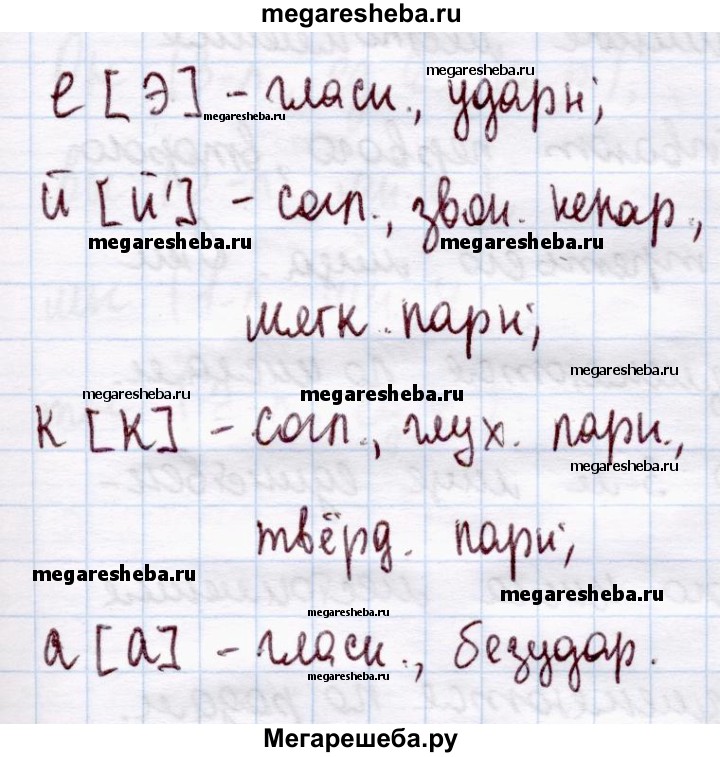 megaresheba.ru
megaresheba.ru
е [э] - гласн., ударн;
megaresheba.ru
й [й'] - согл., звон. непар,
megaresheba.ru megaresheba.ru
мягк. парн;
megaresheba.ru
megaresheba.ru megaresheba.ru
к [к] - согл., глух. парн.,
megaresheba.ru
твёрд. парн;
megaresheba.ru
megaresheba.ru
megaresheba.ru
а [а] - гласн., безудар.
megaresheba.ru
Мегарешеба.ру